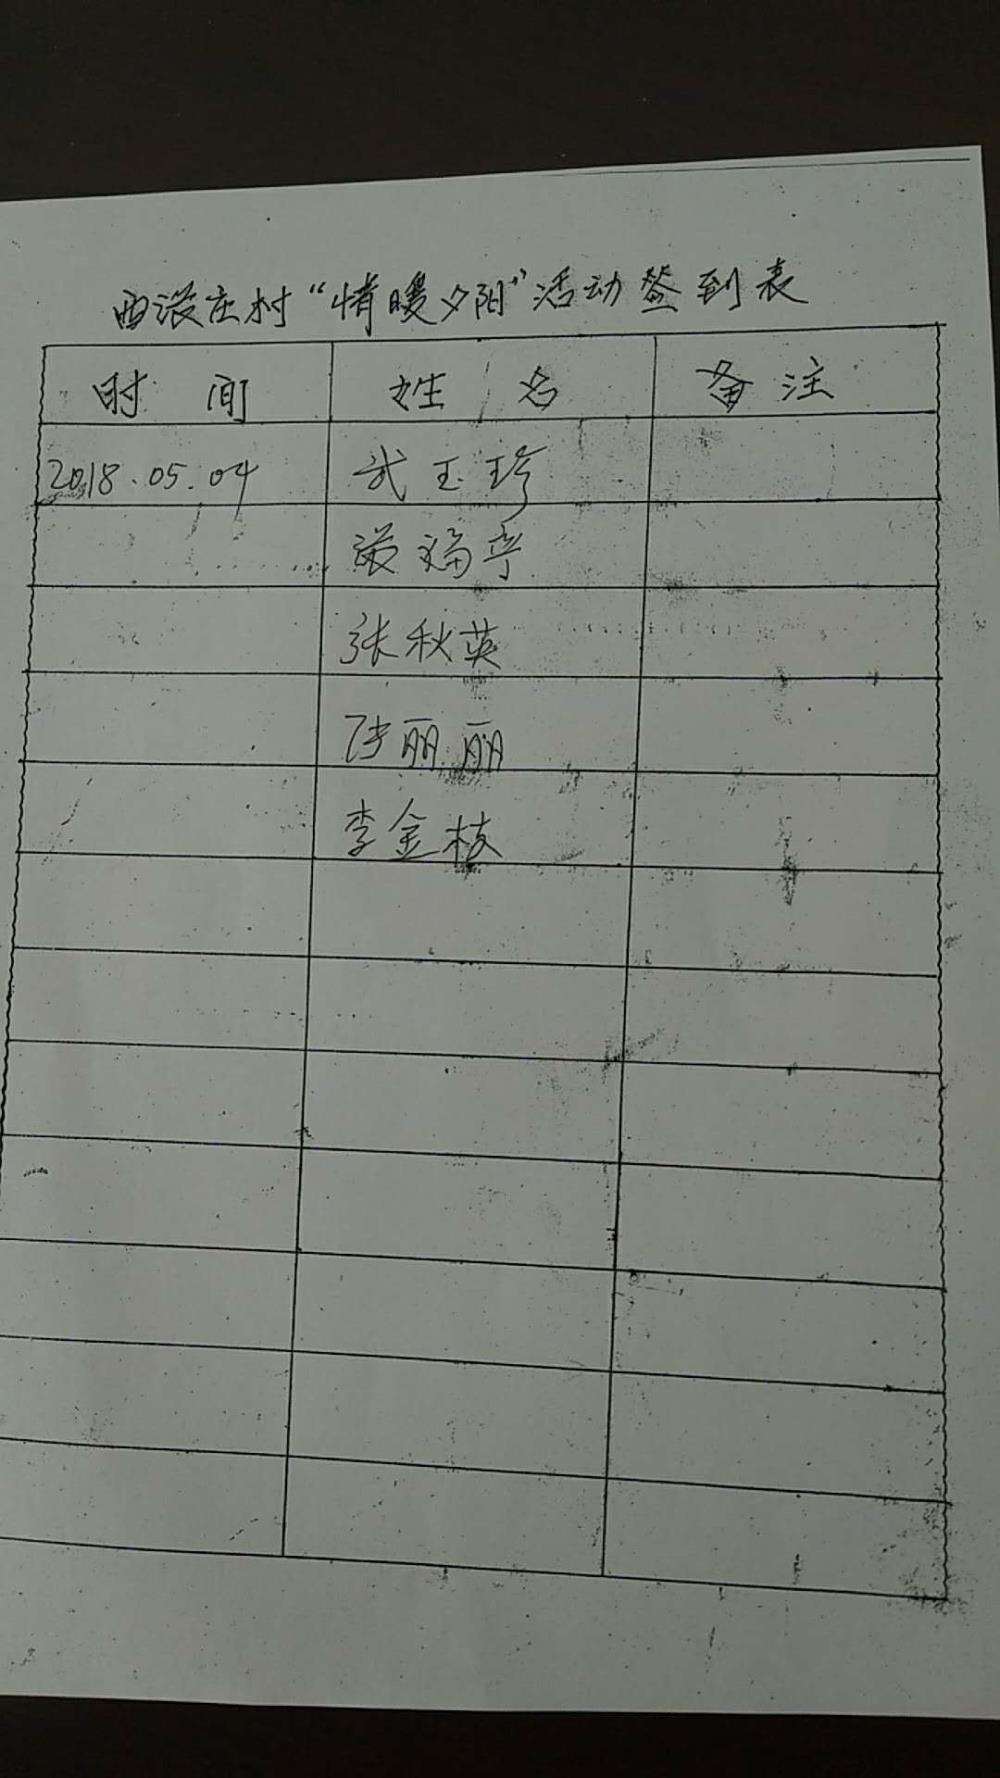 西滚庄村“情暖夕阳”活动签到表
时 间 姓 名 备 注
2018.05.04 武玉珍
张秋英
张丽丽
李金枝